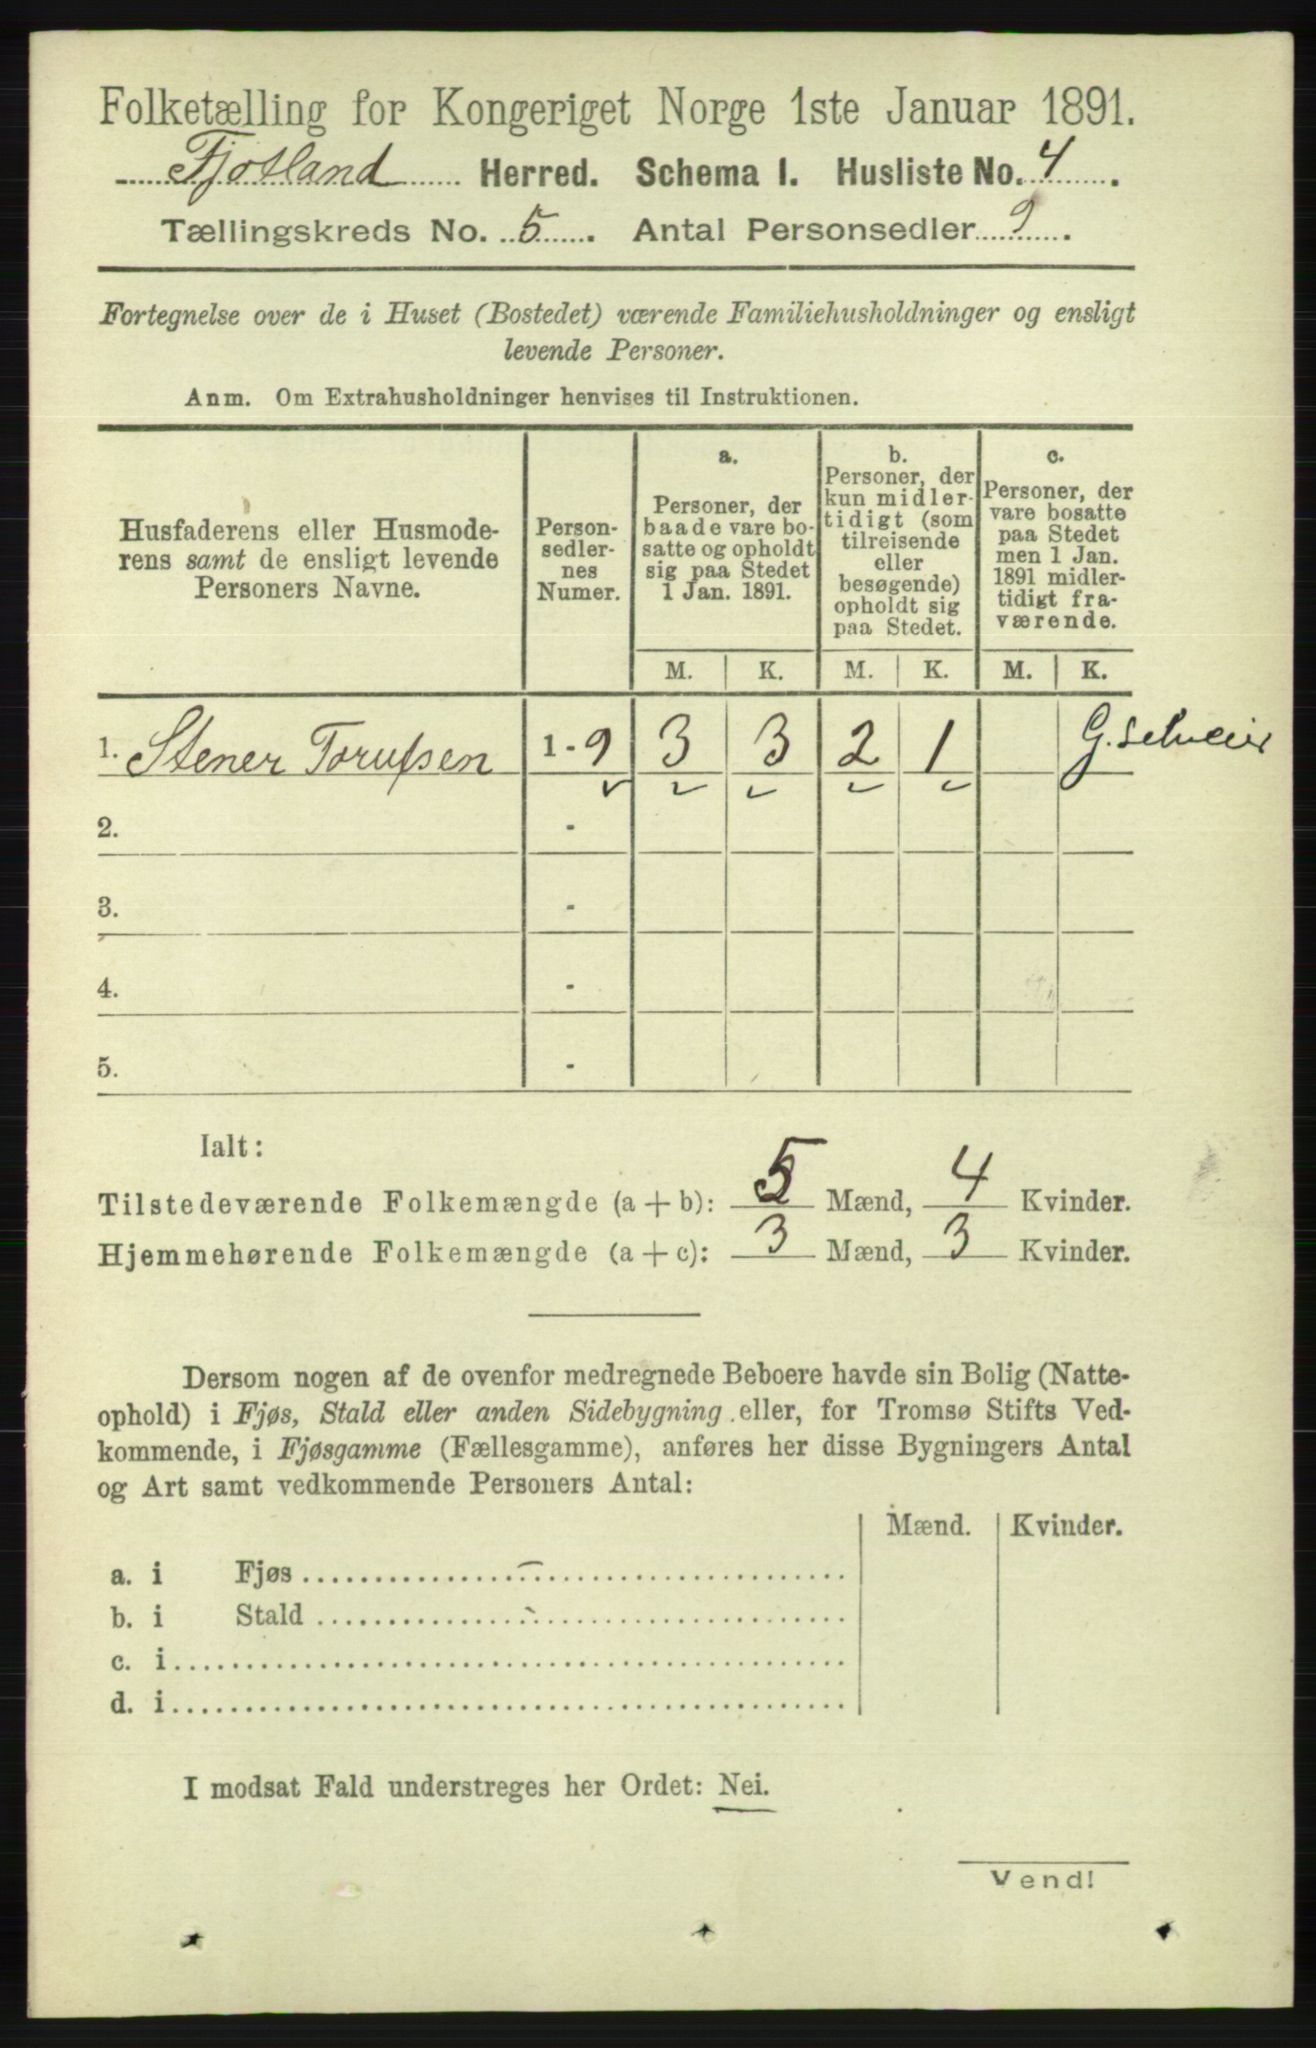 Folketælling for Kongeriget Norge 1ste Januar 1891.
Fjotland Herred. Schema I. Husliste No. 4.
Tællingskreds No. 5. Antal Personsedler 9.
Fortegnelse over de i Huset (Bostedet) værende Familiehusholdninger og ensligt
levende Personer.
Anm. Om Extrahusholdninger henvises til Instruktionen.
Husfaderens eller Husmode-
rens samt de ensligt levende
Personers Navne.
Person-
sedler-
nes
Numer.
a.
Personer, der
baade vare bo-
satte og opholdt
sig paa Stedet
1 Jan. 1891.
b.
Personer, der
kun midler-
tidigt (som
tilreisende
eller
besøgende)
opholdt sig
paa Stedet.
c.
Personer, der
vare bosatte
paa Stedet
men 1 Jan.
1891 midler-
tidigt fra-
værende.
M. K. M. K. M. K.
1. Stener Torufsen 1 - 9 3 3 2 1 G. selveier
2. -
3. -
4. -
5. -
Ialt:
Tilstedeværende Folkemængde (a + b): 5 Mænd, 4 Kvinder.
Hjemmehørende Folkemængde (a + c): 3 Mænd, 3 Kvinder.
Dersom nogen af de ovenfor medregnede Beboere havde sin Bolig (Natte-
ophold) i Fjøs, Stald eller anden Sidebygning eller, for Tromsø Stifts Ved-
kommende, i Fjøsgamme (Fællesgamme), anføres her disse Bygningers Antal
og Art samt vedkommende Personers Antal:
Mænd. Kvinder.
a. i Fjøs
b. i Stald
c. i
d. i
I modsat Fald understreges her Ordet: Nei.
Vend!